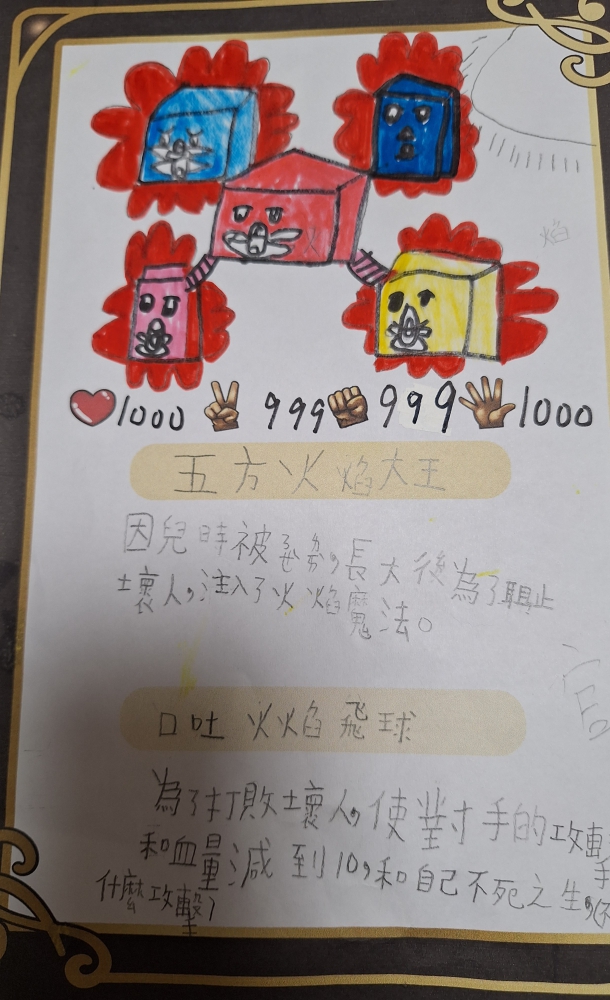 焰
1000 999 999 1000
五方火焰大王
因兒時被,長大後為了阻止
壞人,注入了火焰魔法。
口吐火焰飛球
為了打敗壞人,使對手的攻擊
和血量減到10,和自己不死之生,
什麼攻擊,